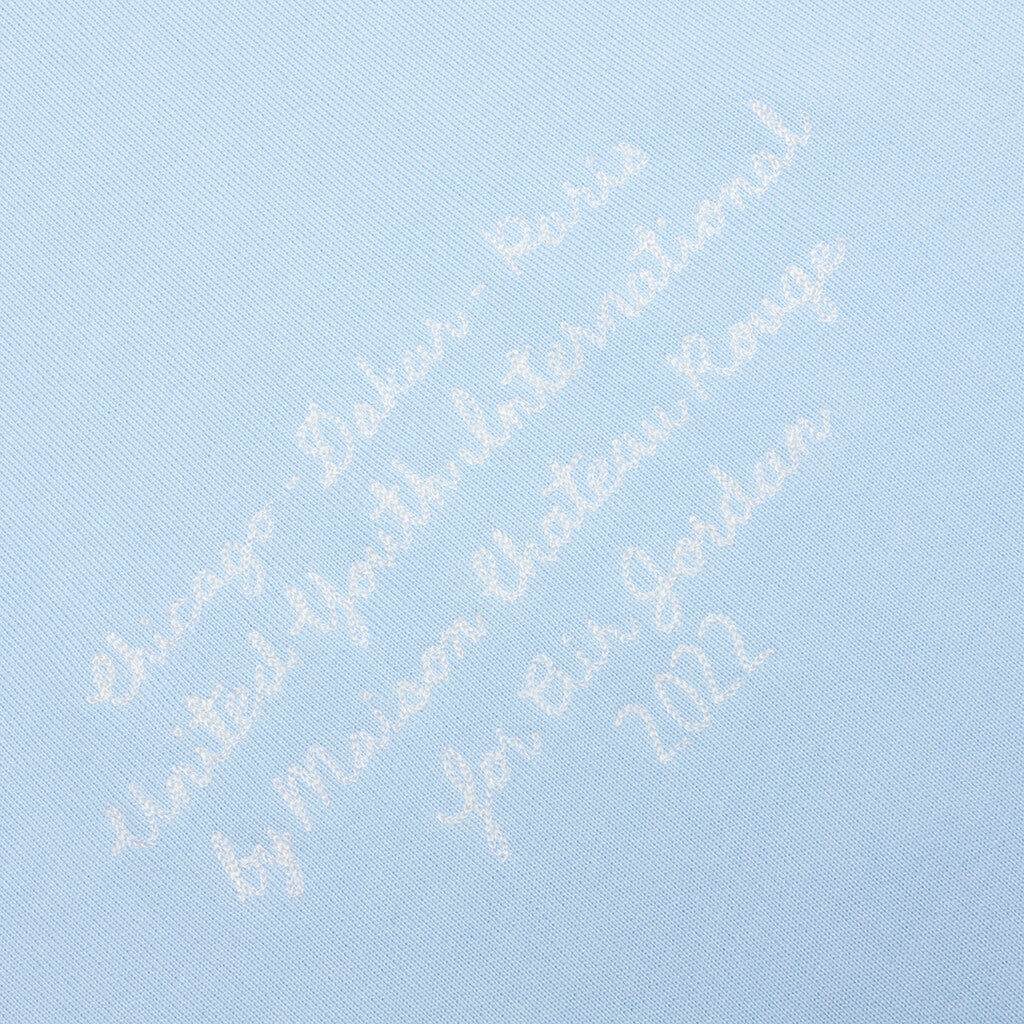 Chicago - Dakar - Paris
United Youth International
by Maison Chateau Rouge
for Air Jordan
2022